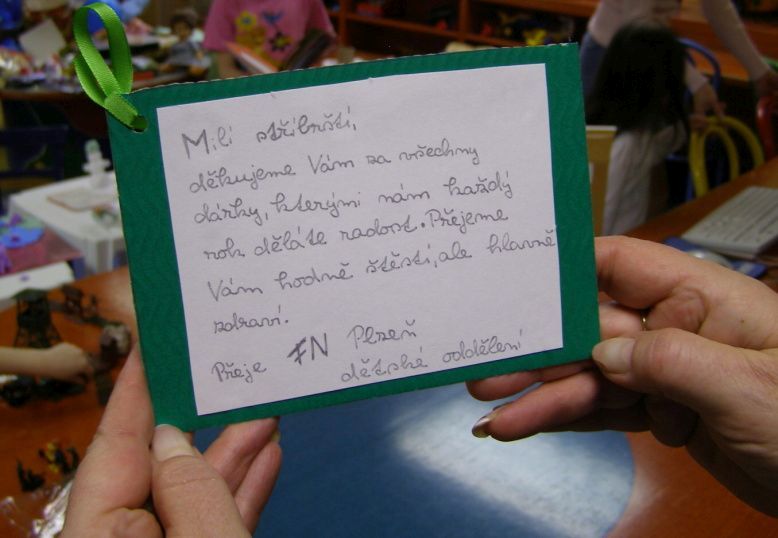 Milí stříbrští,
děkujeme Vám za všechny
dárky, kterými nám každý
rok děláte radost. Přejeme
Vám hodně štěstí, ale hlavně
zdraví.
Přeje FN Plzeň
dětské oddělení